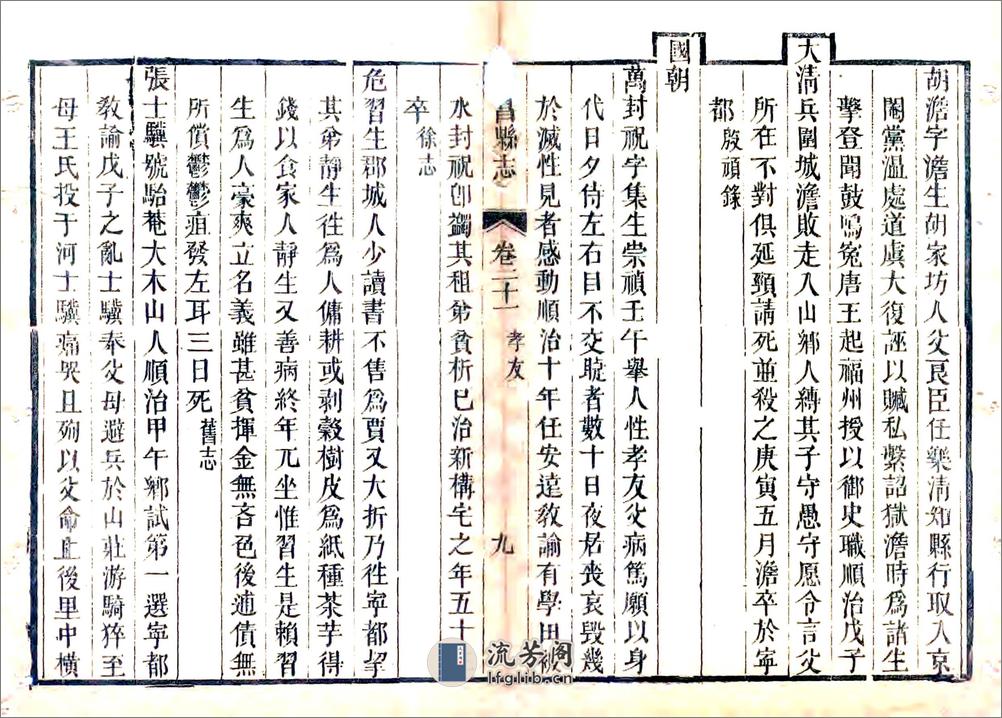 胡澹字澹生胡家坊人父良臣任樂清知縣行取入京
閹黨溫處道虞大復誣以贓私繫詔獄澹時爲諸生
擊登聞鼓鳴冤唐王起福州授以御史職順治戊子
大淸兵圍城澹敗走入山鄉人縛其子守愚守愿令言父
所在不對俱延頸請死並殺之庚寅五月澹卒於寧
都殷頑錄
國朝
萬封祝字集生崇禎壬午舉人性孝友父病篤願以身
代日夕侍左右目不交睫者數十日夜居喪哀毀幾
於滅性見者感動順治十年任安遠敎諭有學田被
昌縣志 卷二十一 孝友 九
水封祝卽蠲其租弟貧析已治新構宅之年五十
卒徐志
危習生郡城人少讀書不售爲賈又大折乃徃寧都挈
其弟靜生徃爲人傭耕或剥榖樹皮爲紙種茶芋得
錢以食家人靜生又善病終年兀坐惟習生是賴習
生爲人豪爽立名義雖甚貧揮金無吝色後逋債無
所償鬱鬱疽發左耳三日死舊志
張士驥號駘菴大木山人順治甲午鄉試第一選寧都
敎諭戊子之亂士驥奉父母避兵於山莊游騎猝至
母王氏投于河士驥痛哭且殉以父命止後里中横
流芳阁
lfglib.cn